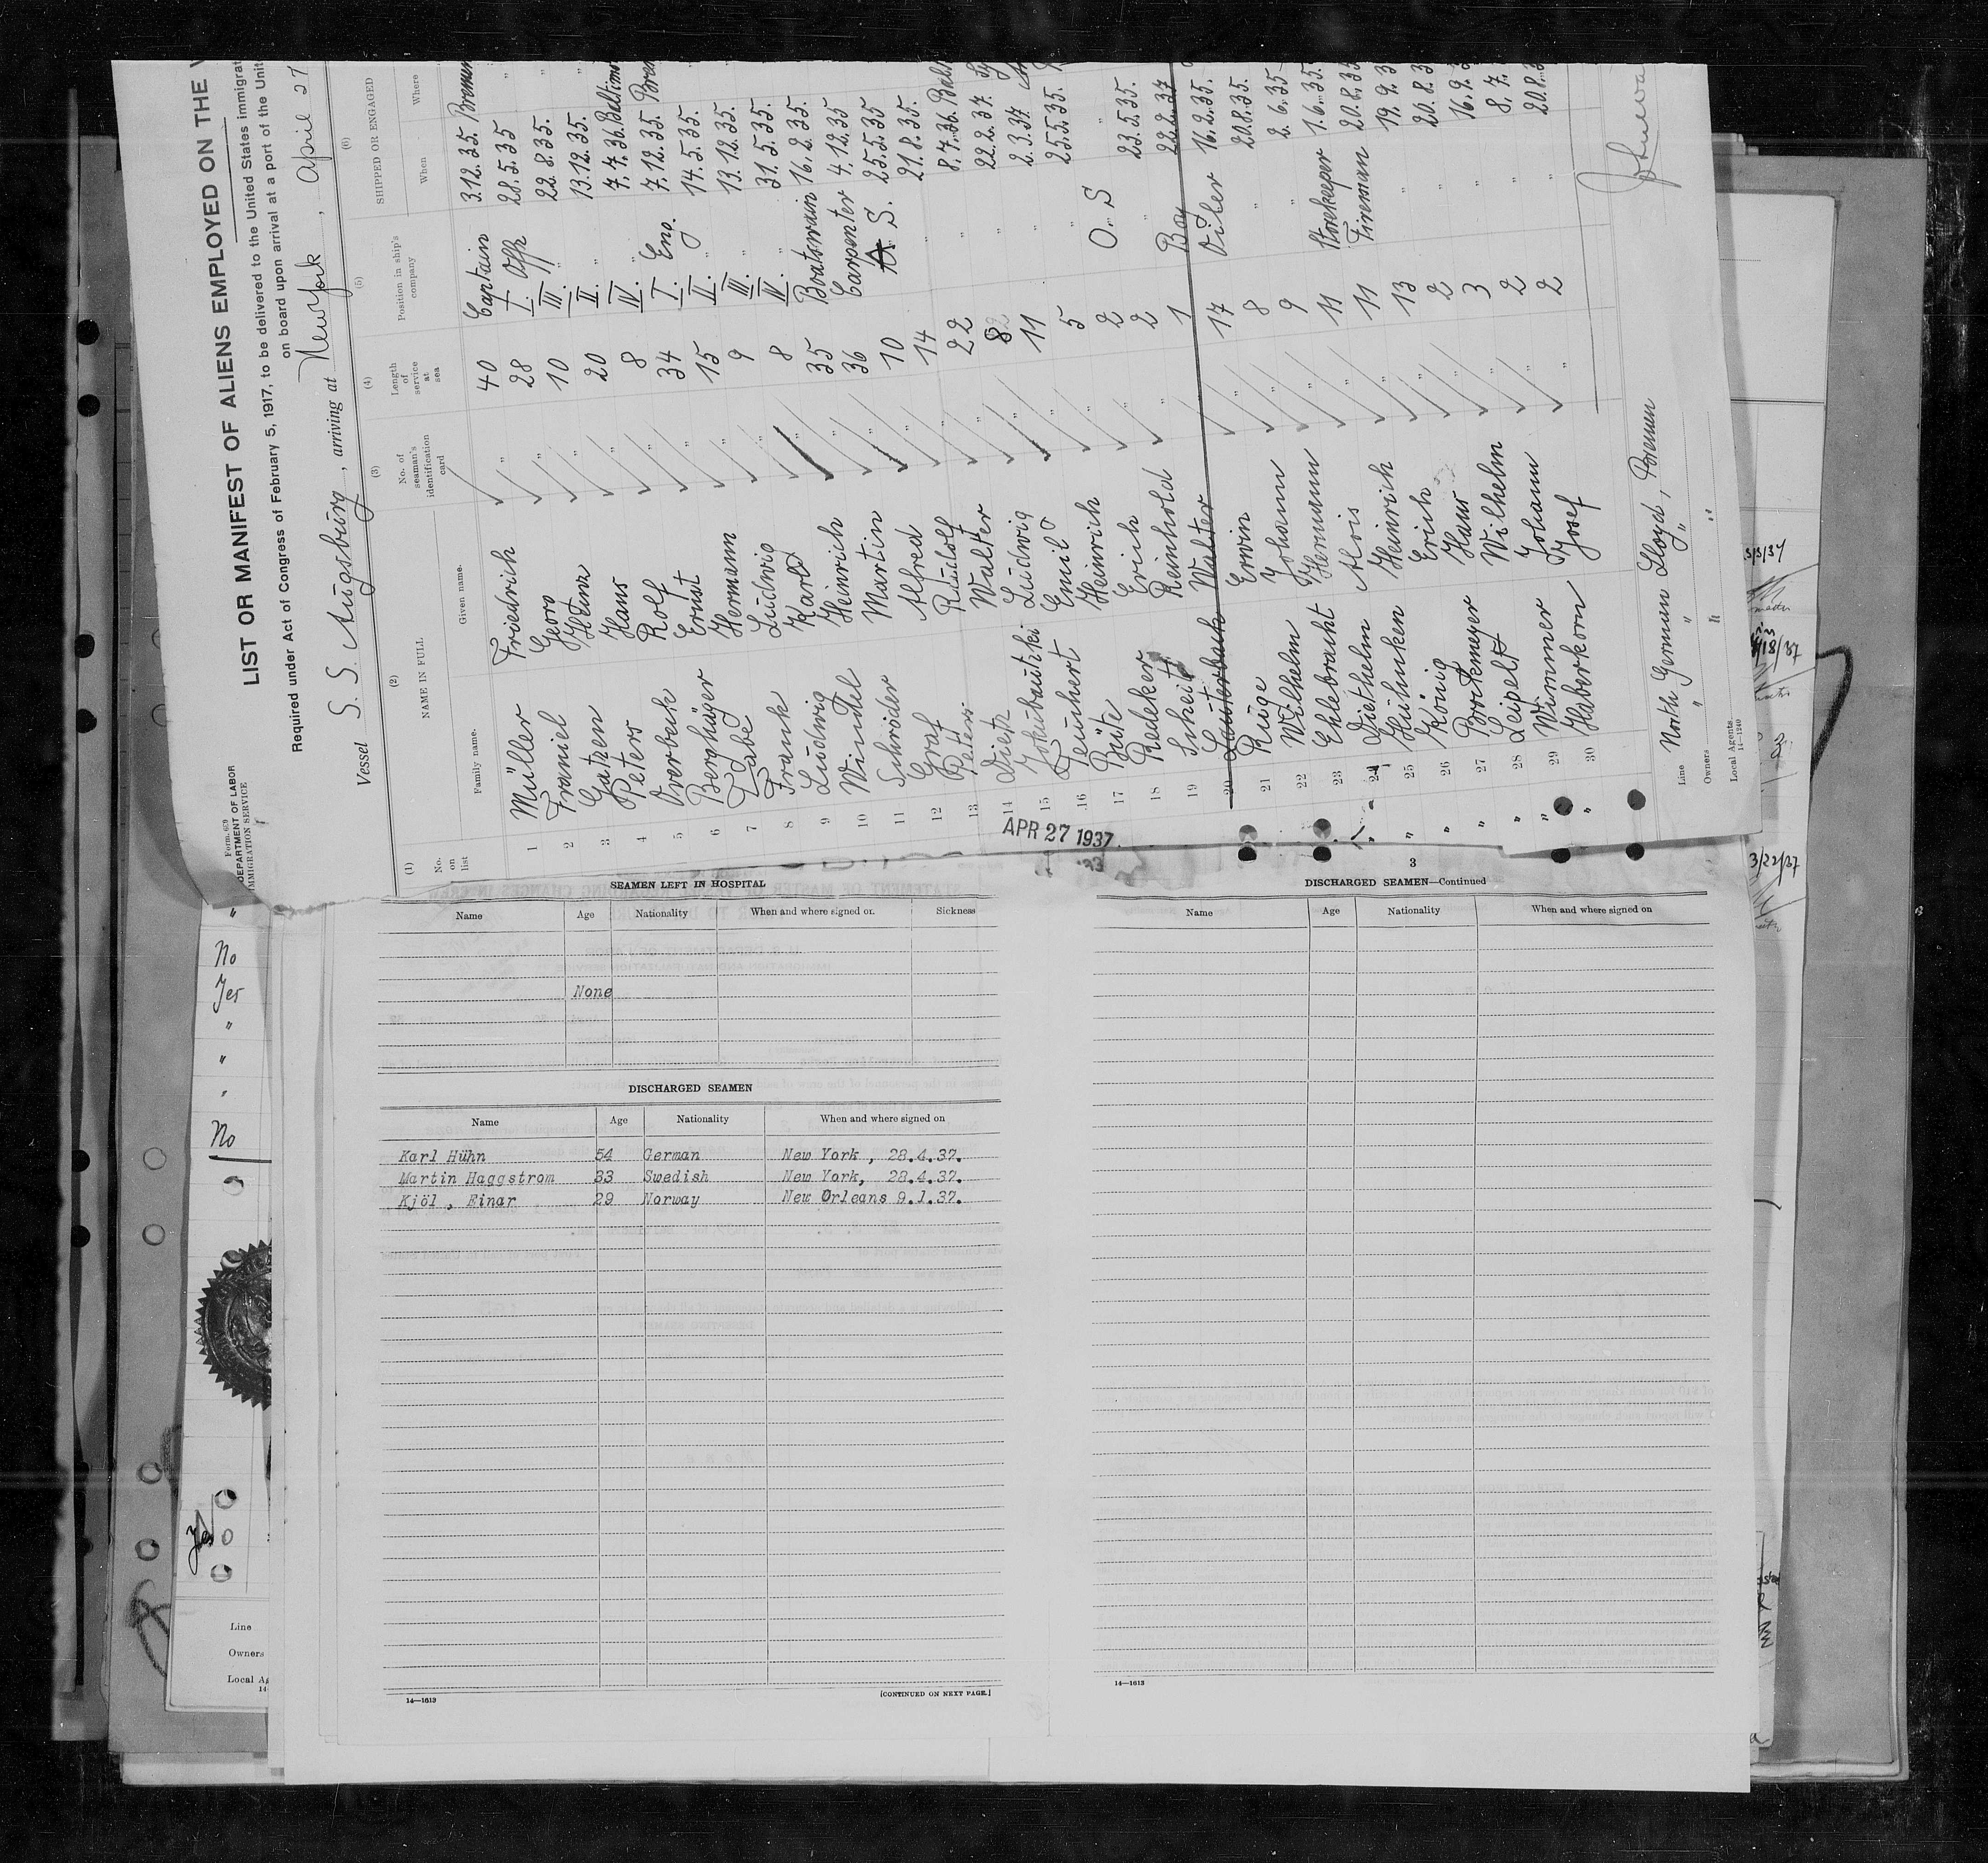 Form 629
DEPARTMENT OF LABOR
IMMIGRATION SERVICE
LIST OR MANIFEST OF ALIENS EMPLOYED ON THE V
Required under Act of Congress of February 5, 1917, to be delivered to the United States immigrat
on board upon arrival at a port of the Unit
Vessel S. S. Augsburg, arriving at New York, April 27
(1) (2) (3) (4) (5) (6)
No. on list
NAME IN FULL
Family name. Given name.
No. of seaman's identification card
Length of service at sea
Position in ship's company
SHIPPED OR ENGAGED
When Where
1 Müller Friedrich 40 Captain 3.12.35. Bremen
2 Franiel Georg " 28 I. Offr 28.5.35 "
3 Gatzen Heinz " 10 III. " 22.8.35. "
4 Peters Hans " 20 II. " 13.12.35. "
5 Overbeck Rolf " 8 IV. " 7.7.36. Baltimo
6 Berghüger Ernst " 34 I. Eng. 7.12.35. Brem
7 Tabel Hermann " 15 II. " 14.5.35. "
8 Frank Ludwig " 9 III. " 13.12.35. "
9 Ludwig Karl " 8 IV. " 31.5.35. "
10 Windel Heinrich " 35 Boatswain 16.2.35. "
11 Schröder Martin " 36 Carpenter 4.12.35 "
12 Graf Alfred " 10 A. S. 25.5.35 "
13 Peters Rudolf " 14 " 21.8.35. "
14 Dietz Walter " 22 " 8.7.36. Balt
15 Ludwig " 8 " 22.2.37.
16 Teuchert Emil " 11 " 2.3.37
17 Büte Heinrich " 5 " 25.5.35.
18 Redeker Erich " 2 O. S "
19 Scheit Reinhold " 2 " 23.5.35.
20 Lauterbach Walter 1 Boy 22.2.37
21 Rüge Erwin " 17 Oiler 16.2.35.
22 Wilhelm Johann " 8 " 20.8.35.
23 Ehlebracht Hermann " 9 " 2.6.35
24 Diethelm Alois " 11 Storekeeper 1.6.35.
25 Hühnken Heinrich " 11 Fireman 20.8.35
26 König Erich " 13 " 19.9.3
27 Borkemeyer Hans " 2 " 20.8.3
28 Leipelt Wilhelm " 3 " 16.9.3
29 Wimmer Johann " 2 " 8.7.
30 Haberkorn Josef " 2 " 20.8.3
Line North German Lloyd, Bremen
Owners " " "
Local Agents " "
14-1240
APR 27 1937
3/22/37
"
No
Yes
"
"
"
No
Yes
Line
Owners
Local Ag
14-
SEAMEN LEFT IN HOSPITAL
Name Age Nationality When and where signed on Sickness
None
DISCHARGED SEAMEN
Name Age Nationality When and where signed on
Karl Hühn 54 German New York , 28.4.37.
Martin Haggstrom 33 Swedish New York, 28.4.37.
Kjöl , Einar 29 Norway New Orleans 9.1.37.
14—1613
[CONTINUED ON NEXT PAGE.]
3
DISCHARGED SEAMEN—Continued
Name Age Nationality When and where signed on
14—1613